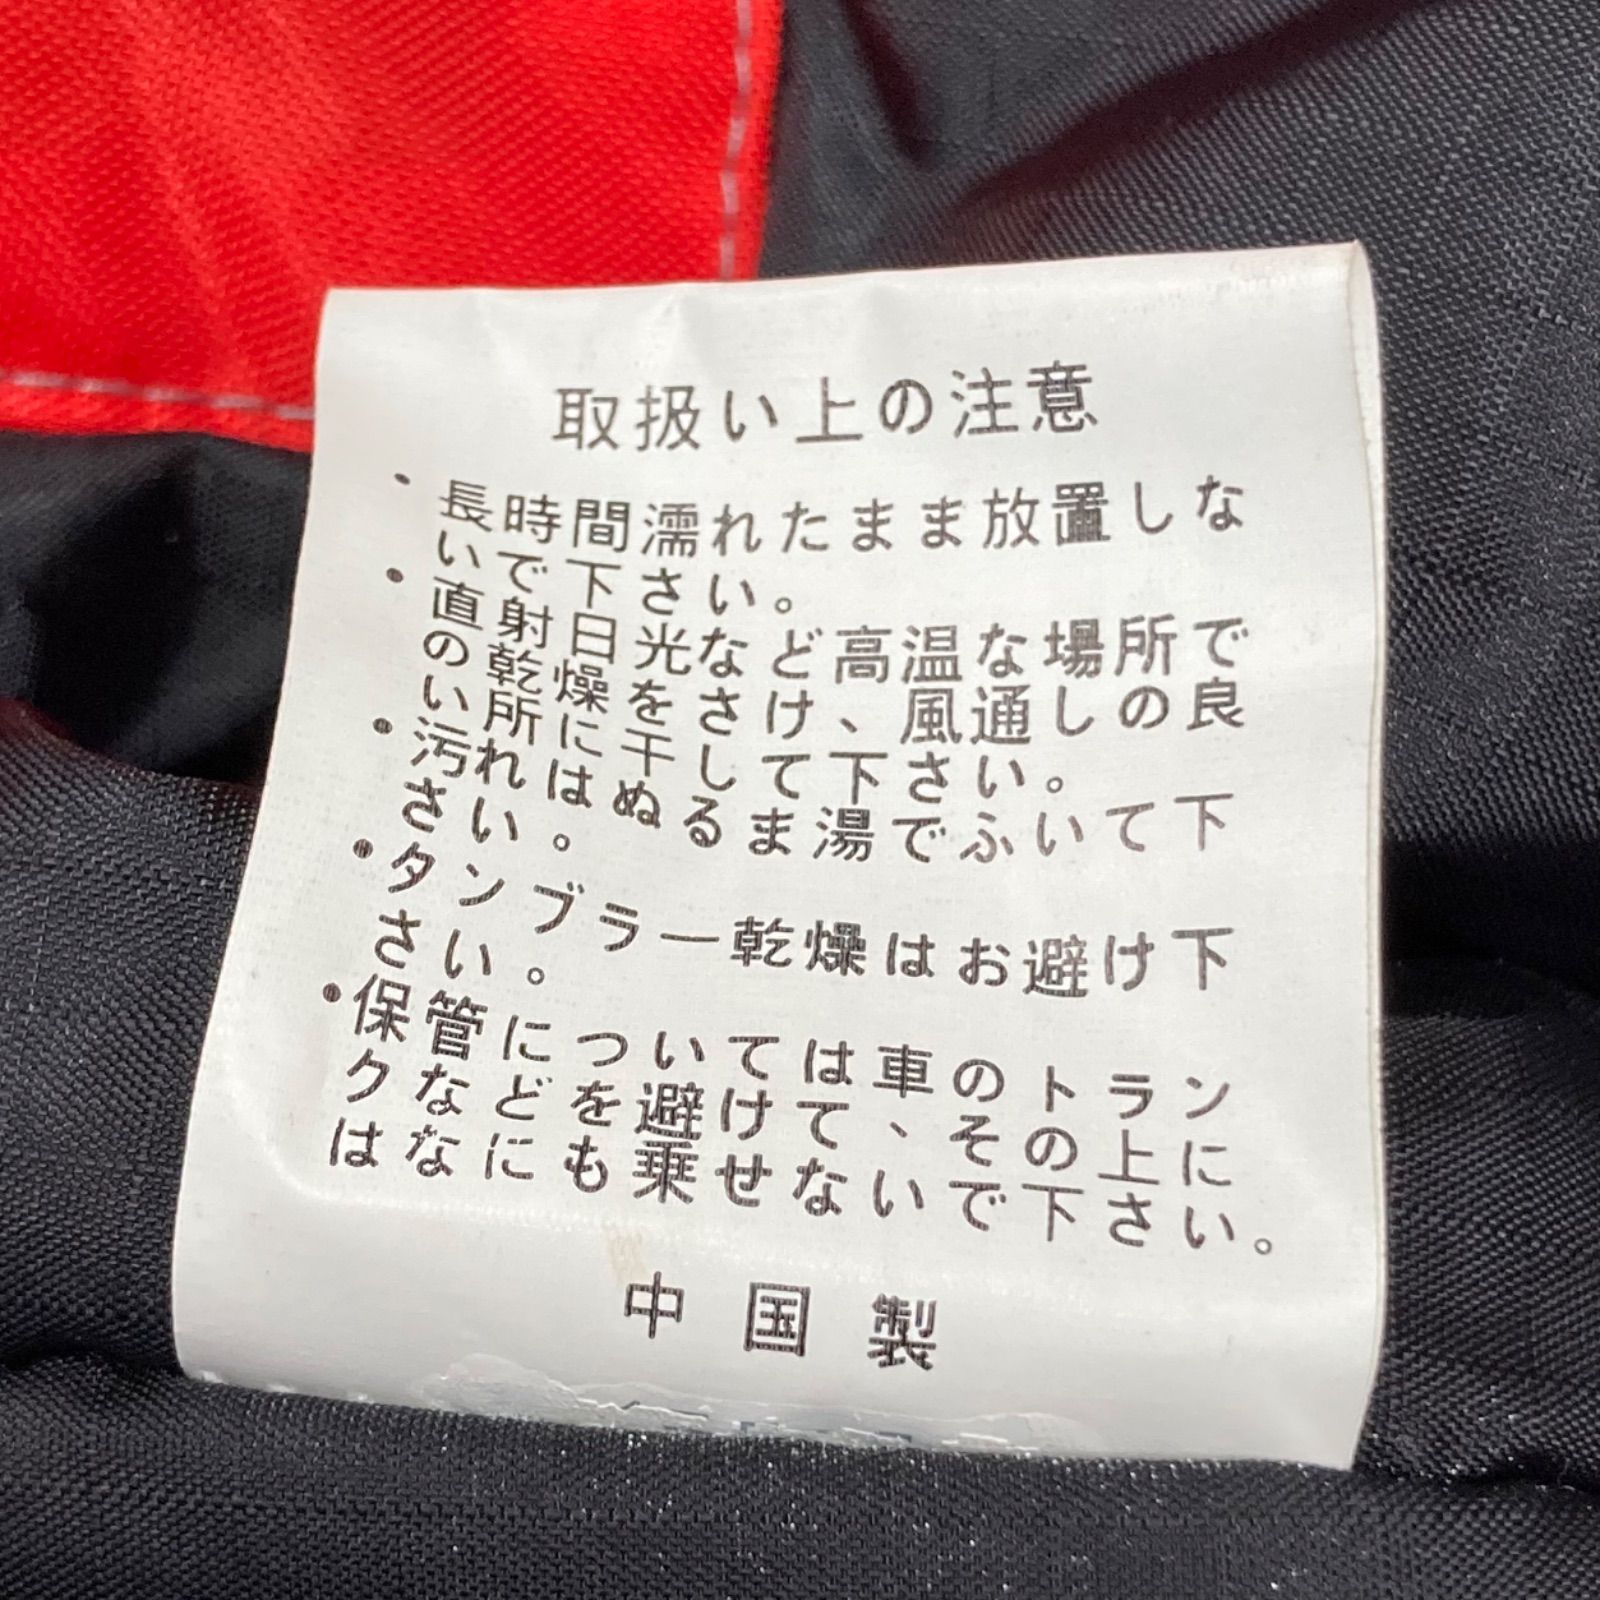 取扱い上の注意
・長時間濡れたまま放置しな
いで下さい。
・直射日光など高温な場所で
の乾燥をさけ、風通しの良
い所に干して下さい。
・汚れはぬるま湯でふいて下
さい。
・タンブラー乾燥はお避け下
さい。
・保管については車のトラン
クなどを避けて、その上に
はなにも乗せないで下さい。
中国製